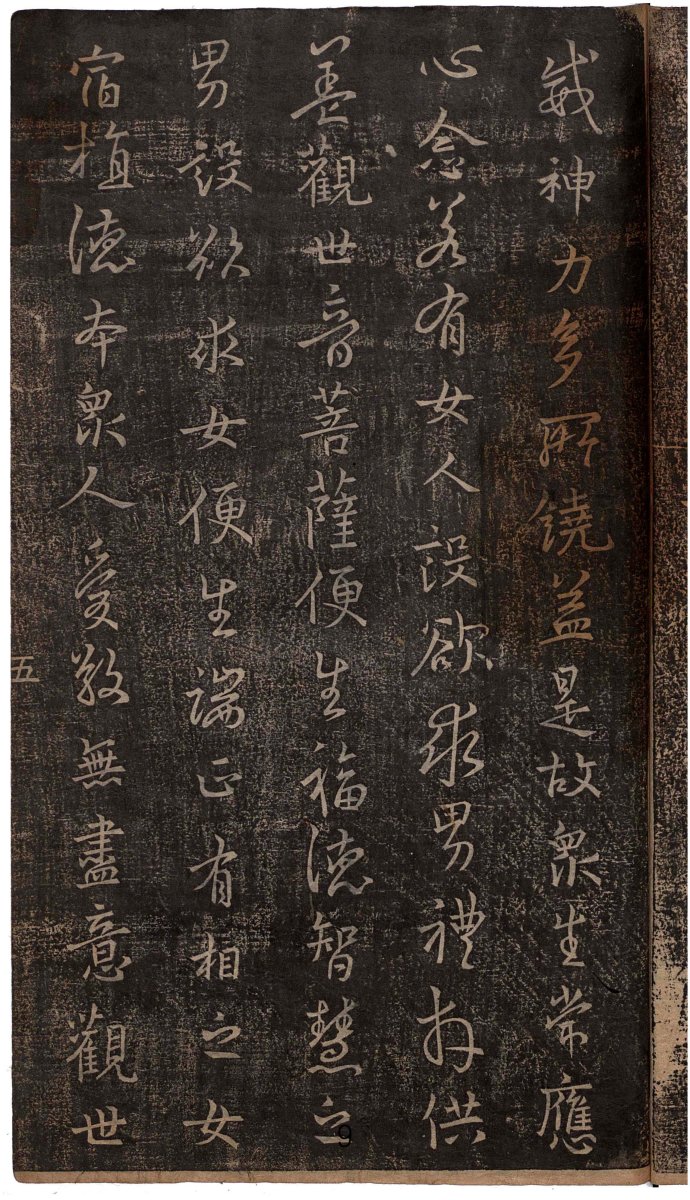 威神力多所饒益是故衆生常應
心念若有女人設欲求男禮拜供
養觀世音菩薩便生福德智慧之
男設欲求女便生端正有相之女
宿植德本衆人愛敬無盡意觀世
五
9